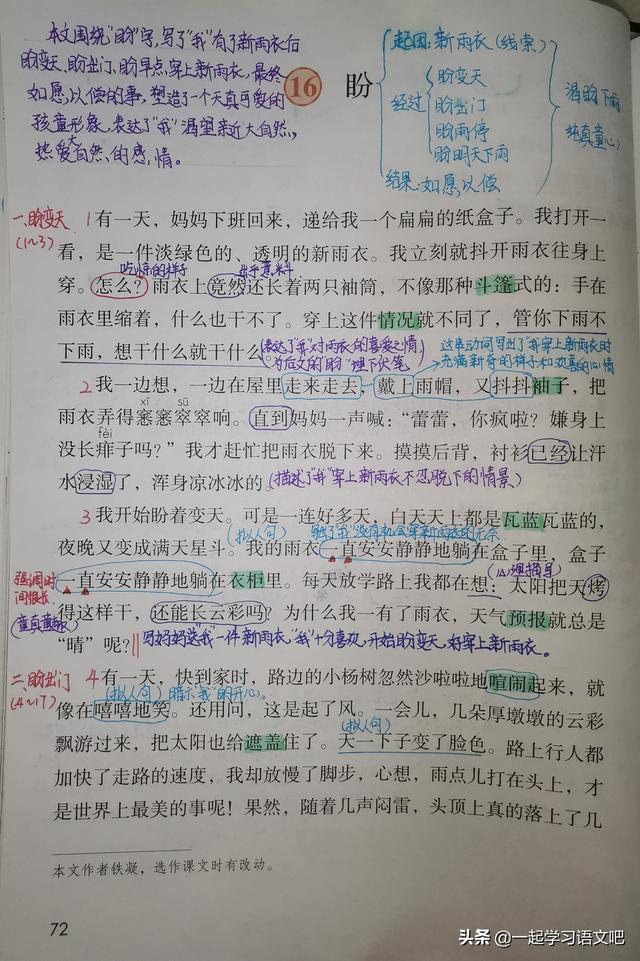 本文围绕“盼”字,写了“我”有了新雨衣后
盼变天、盼出门、盼早点穿上新雨衣,最终
如愿以偿的事,塑造了一个天真可爱的
孩童形象,表达了“我”渴望亲近大自然、
热爱大自然的感情。
16 盼
起因:新雨衣(线索)
经过
盼变天
盼出门
盼雨停
盼明天下雨
结果:如愿以偿
渴盼下雨
纯真童心
一、盼变天
(1~3)
1有一天,妈妈下班回来,递给我一个扁扁的纸盒子。我打开一
看,是一件淡绿色的、透明的新雨衣。我立刻就抖开雨衣往身上
吃惊的样子
出乎意料
穿。怎么?雨衣上竟然还长着两只袖筒,不像那种斗篷式的:手在
雨衣里缩着,什么也干不了。穿上这件情况就不同了,管你下雨不
下雨,想干什么就干什么。
(表达了“我”对雨衣的喜爱之情)
为后文的“盼”埋下伏笔
这串动词写出了“我”穿上新雨衣时
充满新奇的样子和欢喜的心情
2我一边想,一边在屋里走来走去,戴上雨帽,又抖抖袖子,把
xī sū
雨衣弄得窸窸窣窣响。直到妈妈一声喊:“蕾蕾,你疯啦?嫌身上
fèi
没长痱子吗?”我才赶忙把雨衣脱下来。摸摸后背,衬衫已经让汗
水浸湿了,浑身凉冰冰的。(描述了“我”穿上新雨衣不忍脱下的情景)
3我开始盼着变天。可是一连好多天,白天天上都是瓦蓝瓦蓝的,
(拟人句)
夜晚又变成满天星斗。我的雨衣一直安安静静地躺在盒子里,盒子
强调时
间很长
一直安安静静地躺在衣柜里。每天放学路上我都在想:太阳把天烤
(心理描写)
得这样干,还能长云彩吗?为什么我一有了雨衣,天气预报就总是
(童真童趣)
“晴”呢?
写妈妈送我一件新雨衣,“我”十分喜欢,开始盼变天,好穿上新雨衣。
二、盼出门
4有一天,快到家时,路边的小杨树忽然沙啦啦地喧闹起来,就
(拟人句)暗示“我”的开心。
像在嘻嘻地笑。还用问,这是起了风。一会儿,几朵厚墩墩的云彩
(拟人句)
飘游过来,把太阳也给遮盖住了。天一下子变了脸色。路上行人都
加快了走路的速度,我却放慢了脚步,心想,雨点儿打在头上,才
是世界上最美的事呢!果然,随着几声闷雷,头顶上真的落上了几
本文作者铁凝,选作课文时有改动。
72
头条 @一起学习语文吧